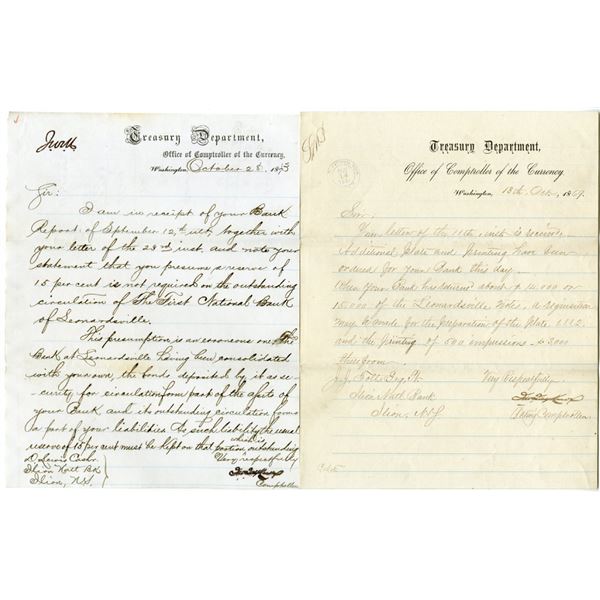 Treasury Department,
Office of Comptroller of the Currency.
Washington, October 28. 1873
Sir:
I am in receipt of your Bank
Report of September 12th ult, together with
your letter of the 23rd inst. and note your
statement that you presume, a reserve of
15 per cent is not required on the outstanding
circulation of The First National Bank
of Leonardsville.
This presumption is an erroneous one. The
Bank at Leonardsville having been consolidated
with your own, the bonds deposited by it as se-
curity for circulation form part of the assets of
your Bank and its outstanding circulation forms
a part of your liabilities. As such liability the usual
reserve of 15 per cent must be kept on that portion which is outstanding
Very respectfully
D Lewis Cashr.
Ilion Natl Bk
Ilion, N.Y.
Comptroller
Treasury Department,
Office of Comptroller of the Currency.
Washington, 13th Oct., 1869.
Sir:
Your letter of the 11th, inst. is received.
Additional plate and printing have been
ordered for your Bank this day.
When your Bank has returned about $14,000 or
15,000 of the Leonardsville notes, a requisition
may be made for the preparation of the plate
and the printing of 500 impressions $
therefrom
Very Respectfully
Ilion Natl Bank
Ilion, N.Y.
Acting Comptroller